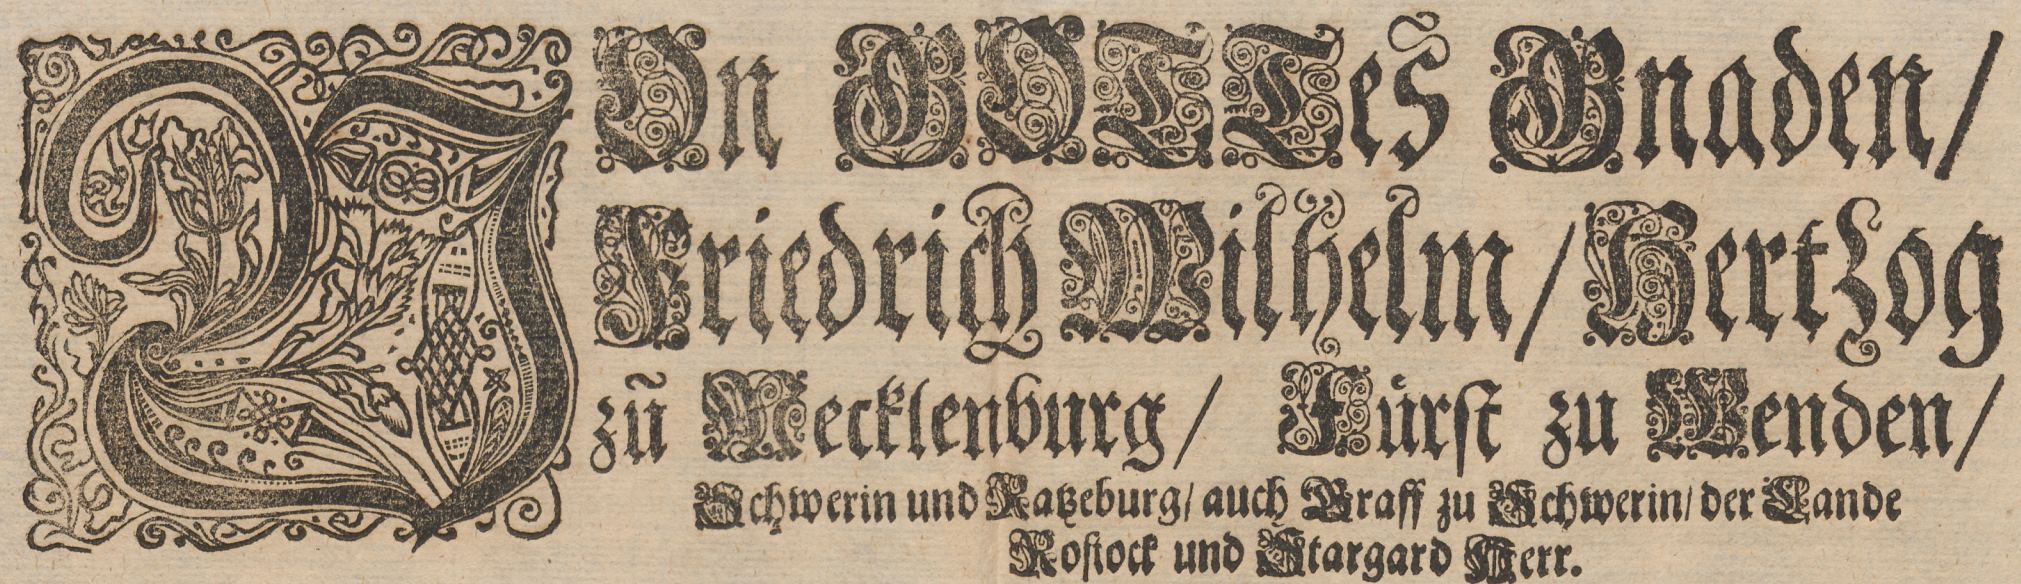 VOn GOTTes Gnaden/
Friedrich Wilhelm/ Hertzog
zu Mecklenburg/ Fürst zu Wenden/
Schwerin und Ratzeburg/ auch Graff zu Schwerin/ der Lande
Rostock und Stargard Herr.